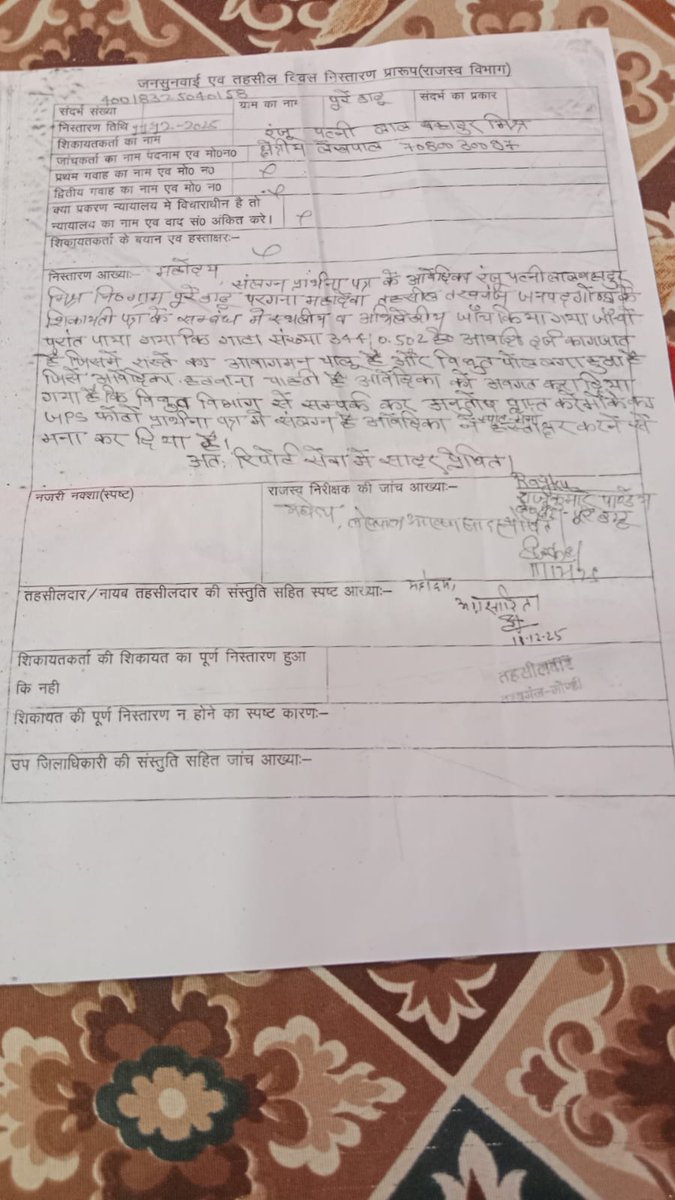 जनसुनवाई एवं तहसील दिवस निस्तारण प्रारूप(राजस्व विभाग)
संदर्भ संख्या 40018325040158 ग्राम का नाम पूरे डाढू संदर्भ का प्रकार
निस्तारण तिथि 11-12-2025
शिकायतकर्ता का नाम रंजू पत्नी लाल बहादुर मिश्र
जांचकर्ता का नाम पदनाम एवं मो०न० क्षेत्रीय लेखपाल
प्रथम गवाह का नाम एवं मो० न०
द्वितीय गवाह का नाम एवं मो० न०
क्या प्रकरण न्यायालय मे विचाराधीन है तो
न्यायालय का नाम एवं वाद सं० अंकित करे।
शिकायतकर्ता के बयान एवं हस्ताक्षरः-
निस्तारण आख्याः- महोदय
संलग्न प्रार्थना पत्र के आवेदिका रंजू पत्नी लालबहादुर
मिश्र नि०ग्राम परगना महादेवा तहसील तरबगंज जनपद गोण्डा के
शिकायती पत्र के सम्बंध में स्थलीय व अभिलेखीय जाँच किया गया जाँचो
परांत पाया गया कि गाटा संख्या 344/0.502हे० आबादी दर्ज कागजात
है जिसमें रास्ते का आवागमन चालू है और विद्युत पोल लगा हुआ है
जिसे आवेदिका हटवाना चाहती है आवेदिका को अवगत करा दिया
गया है कि विद्युत विभाग से सम्पर्क कर प्राप्त करें मौके का
GPS फोटो प्रार्थना पत्र में संलग्न है आवेदिका ने हस्ताक्षर करने से
मना कर दिया है।
अतः रिपोर्ट सेवा में सादर प्रेषित।
नजरी नक्शा(स्पष्ट) राजस्व निरीक्षक की जांच आख्याः-
राजकुमार पाण्डेय
महोदय,
तहसीलदार/नायब तहसीलदार की संस्तुति सहित स्पष्ट आख्याः- महोदय,
अग्रसारित
11-12-25
शिकायतकर्ता की शिकायत का पूर्ण निस्तारण हुआ
कि नही
तहसीलदार
तरबगंज-गोण्डा
शिकायत की पूर्ण निस्तारण न होने का स्पष्ट कारणः-
उप जिलाधिकारी की संस्तुति सहित जांच आख्याः-